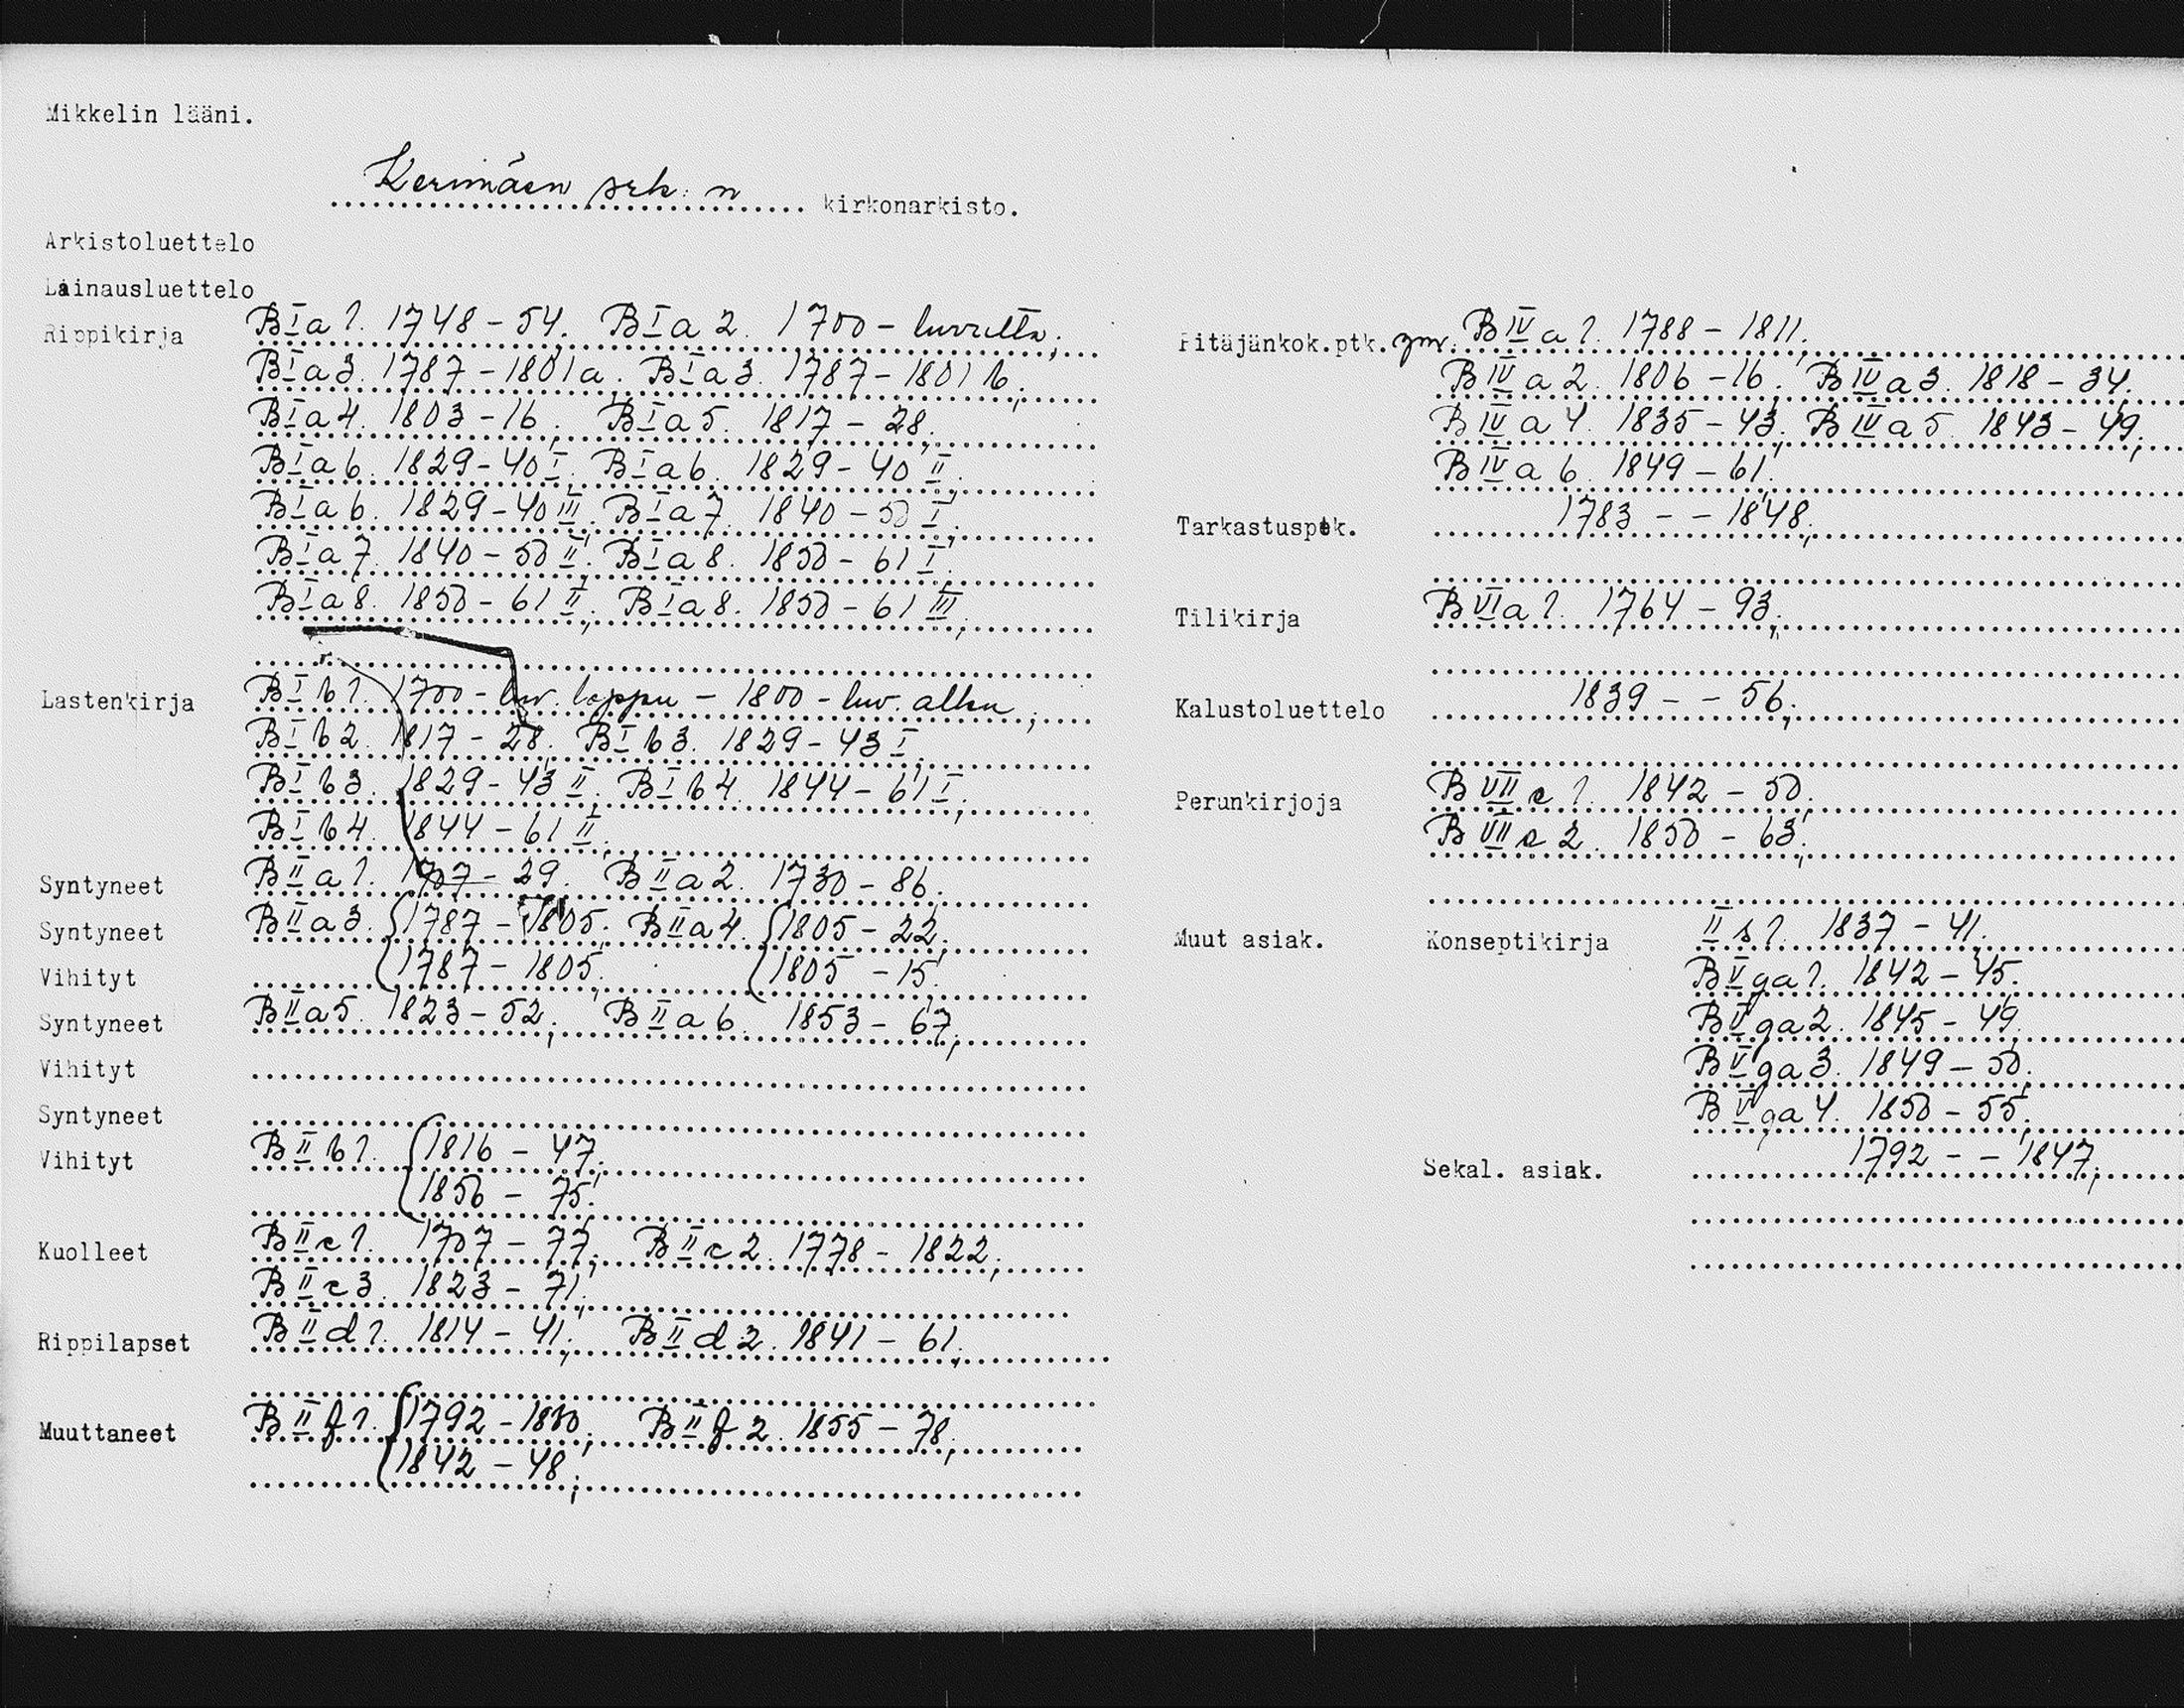 Mikkelin lääni.
Kerimäen srk:n kirkonarkisto.
Arkistoluettelo
Lainausluettelo
Rippikirja BIa1. 1748-54. BIa2. 1700-luvulta;
BIa3. 1787-1801a. BIa3. 1787-1801b;
BIa4. 1803-16; BIa5. 1817-28;
BIa6. 1829-40 I; BIa6. 1829-40 II;
BIa6. 1829-40 III; BIa7. 1840-50 I;
BIa7. 1840-50 II; BIa8. 1850-61 I;
BIa8. 1850-61 II; BIa8. 1850-61 III;
Lastenkirja BIb1. 1700-luv. loppu - 1800-luv. alku;
BIb2. 1817-28. BIb3. 1829-43 I;
BIb3. 1829-43 II; BIb4. 1844-61 I;
BIb4. 1844-61 II;
Syntyneet BIIa1. 1707-29. BIIa2. 1730-86.
Syntyneet BIIa3. 1787-1805. BIIa4. 1805-22;
Vihityt 1787-1805; 1805-15;
Syntyneet BIIa5. 1823-52; BIIa6. 1853-67;
Vihityt
Syntyneet
Vihityt BIIb1. 1816-47;
1856-75;
Kuolleet BIIc1. 1707-77; BIIc2. 1778-1822;
BIIc3. 1823-71;
Rippilapset BIId1. 1814-41; BIId2. 1841-61;
Muuttaneet BIIf1. 1792-1830; BIIf2. 1855-78;
1842-48;
Pitäjänkok.ptk. ym. BIVa1. 1788-1811;
BIVa2. 1806-16; BIVa3. 1818-34;
BIVa4. 1835-43; BIVa5. 1843-49;
BIVa6. 1849-61;
Tarkastusptk. 1783--1848;
Tilikirja BVIa1. 1764-93;
Kalustoluettelo 1839--56;
Perunkirjoja BVIIc1. 1842-50;
BVIIc2. 1850-63;
Muut asiak. Konseptikirja 1837-41.
BVga1. 1842-45.
BVga2. 1845-49.
BVga3. 1849-50.
BVga4. 1850-55;
Sekal. asiak. 1792--1847;